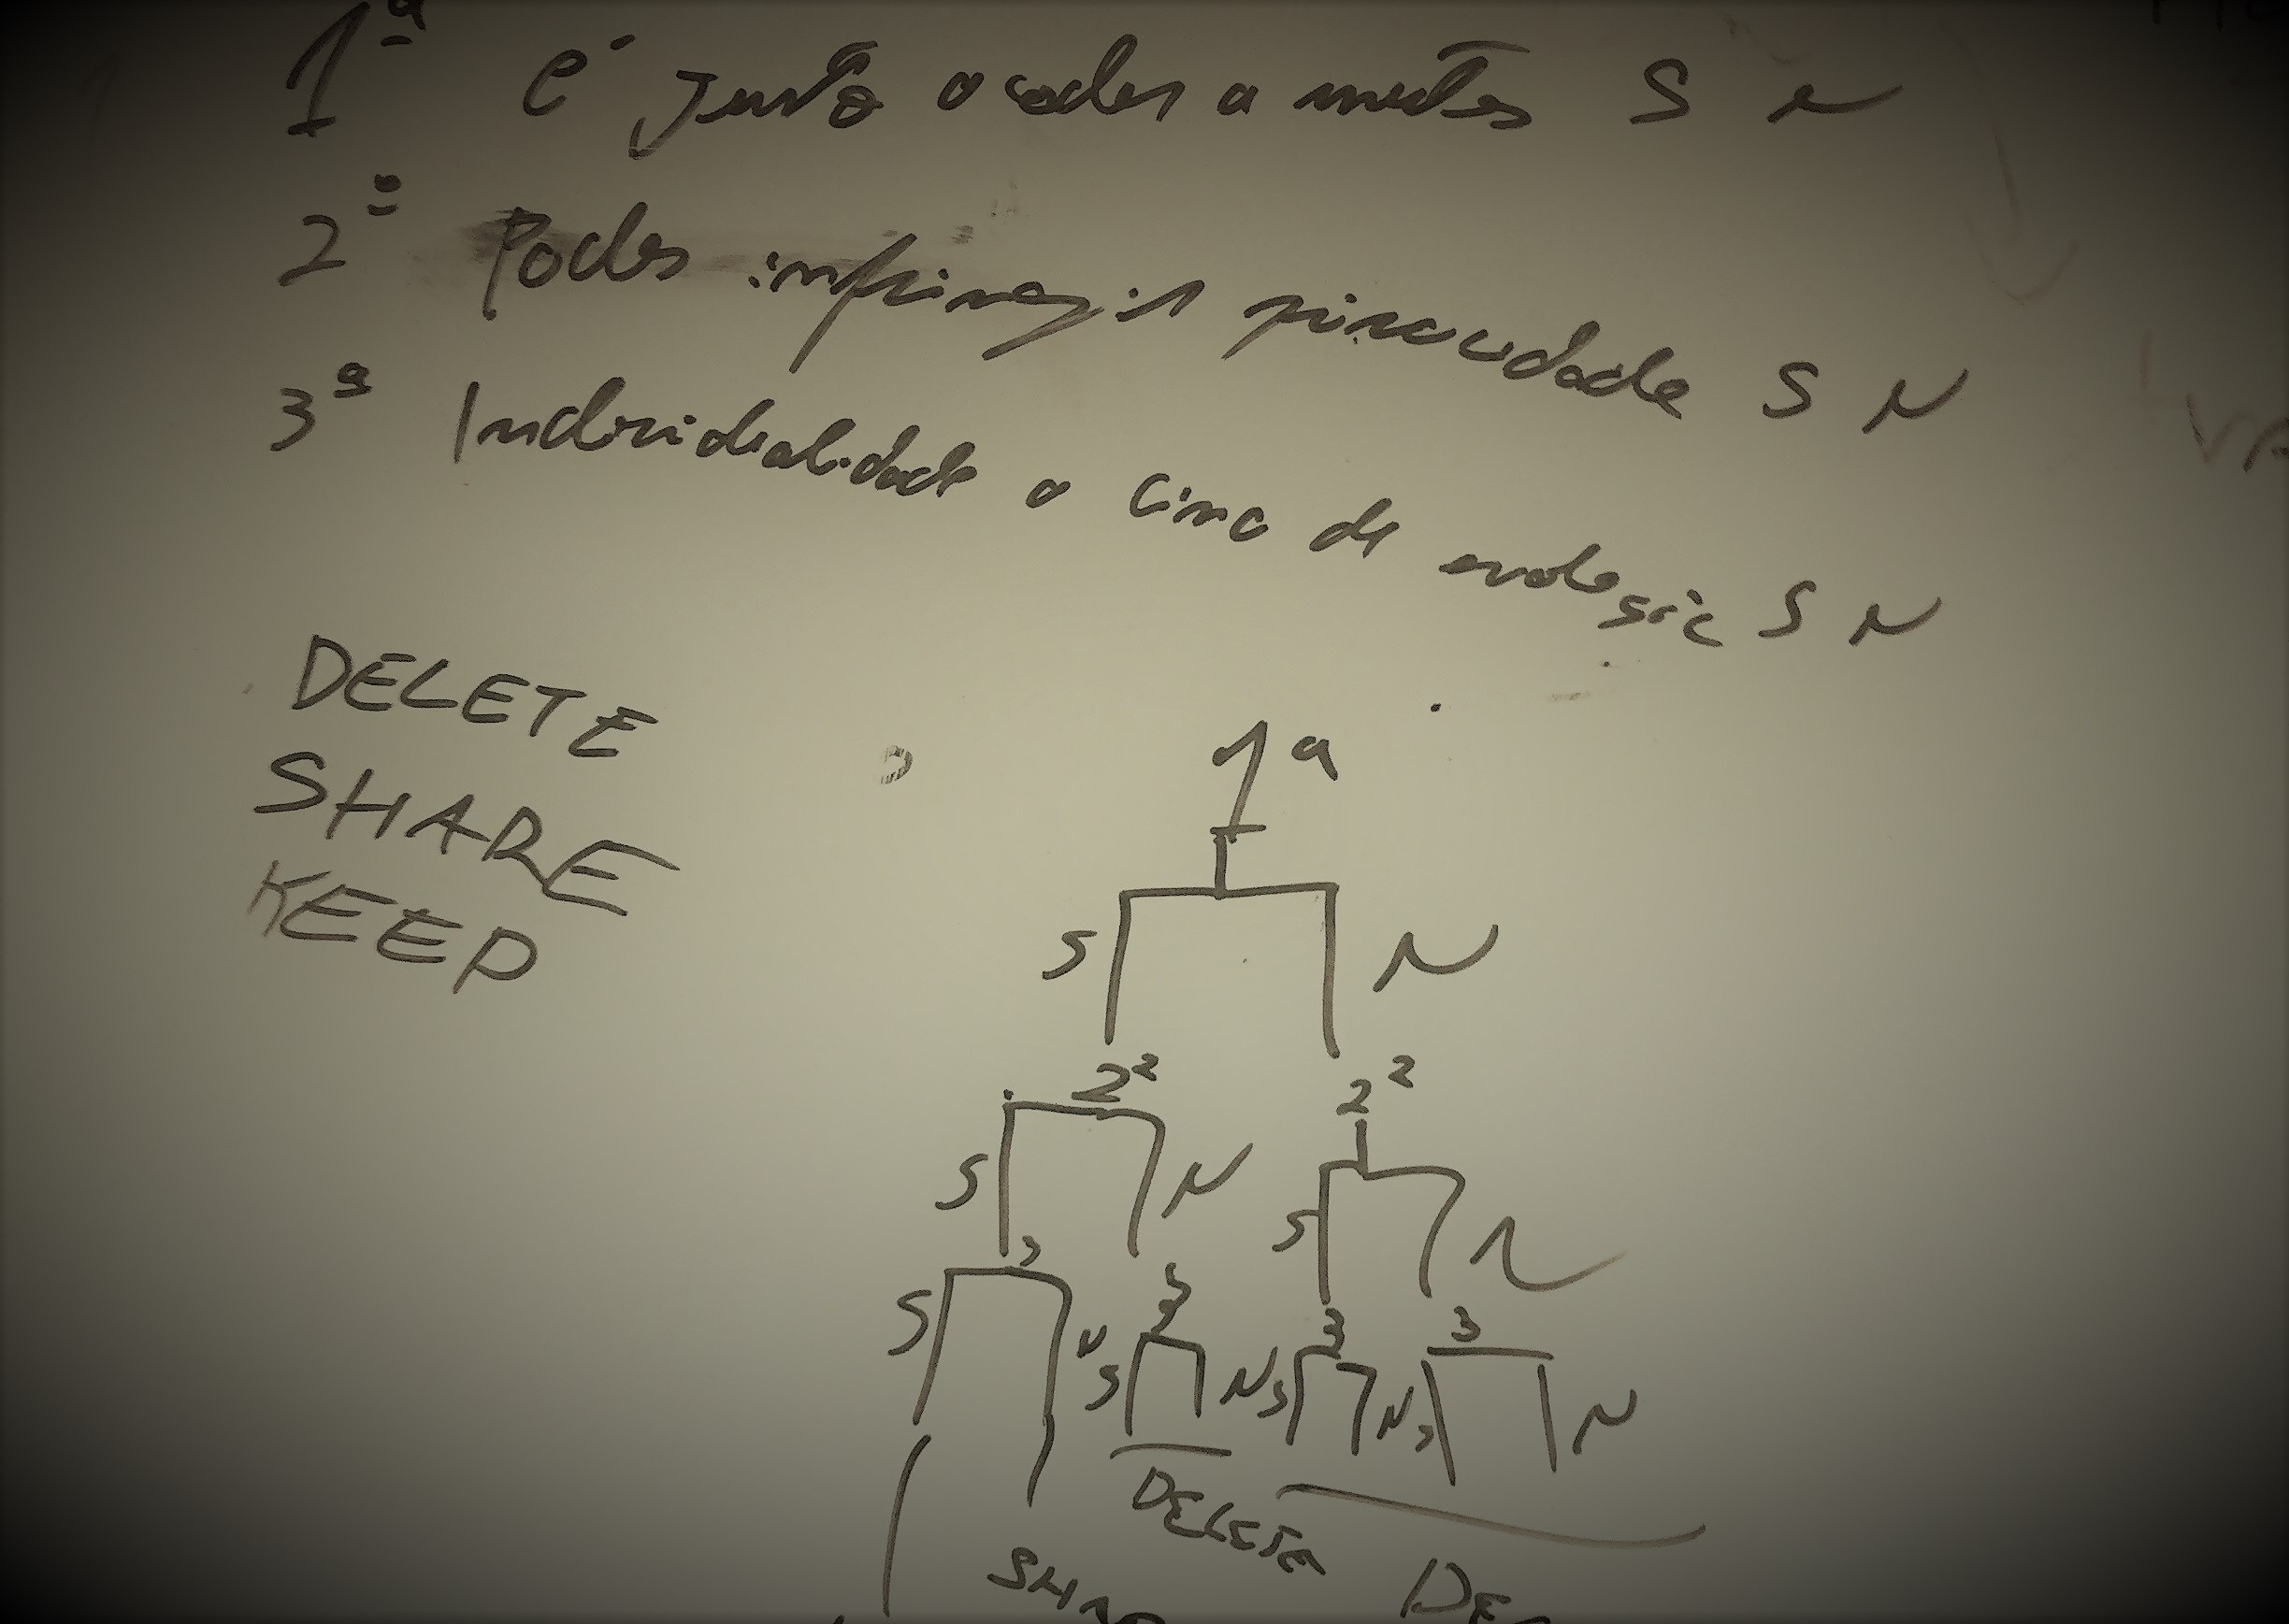 1ª é justo aceder a mentes S N
2ª Podes infringir privacidade S N
3ª Individialidade a cima de S N
DELETE
SHARE
KEEP
1ª
S N
2ª 2ª
S N S N
3 3 3 3
S N S N S N S N
DELETE